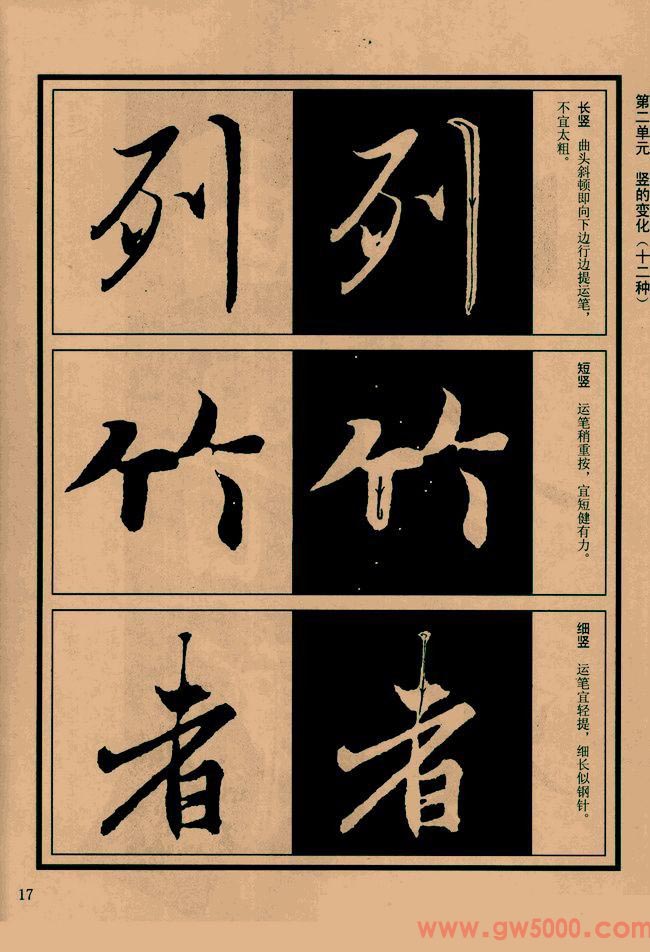 第二单元 竖的变化（十二种）
长竖 曲头斜顿即向下边行边提运笔，
不宜太粗。
列 列
短竖 运笔稍重按，宜短健有力。
竹 竹
细竖 运笔宜轻提，细长似钢针。
者 者
17
www.gw5000.com